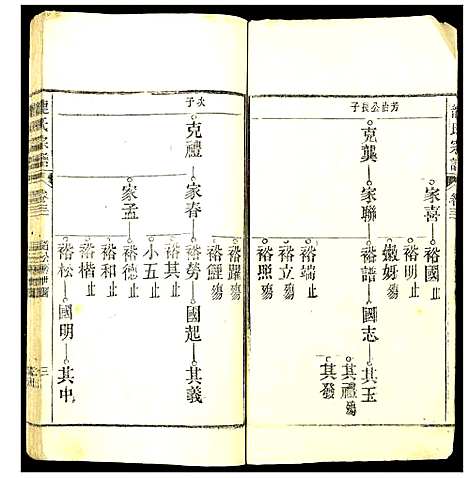 芳莊公長子
克龔
家聯
家喜
裕譜
裕端
裕立 殤
裕照 殤
裕國 止
裕明 止
國志
其玉
其禮 殤
其發
氏宗譜
卷三
次子
克禮
家春
家孟
裕勞
裕躍 殤
裕鯉 殤
裕其 止
小五 止
裕德 止
裕和 止
裕楷 止
裕松
國起
其義
國明
其中
氏宗譜
卷三
三